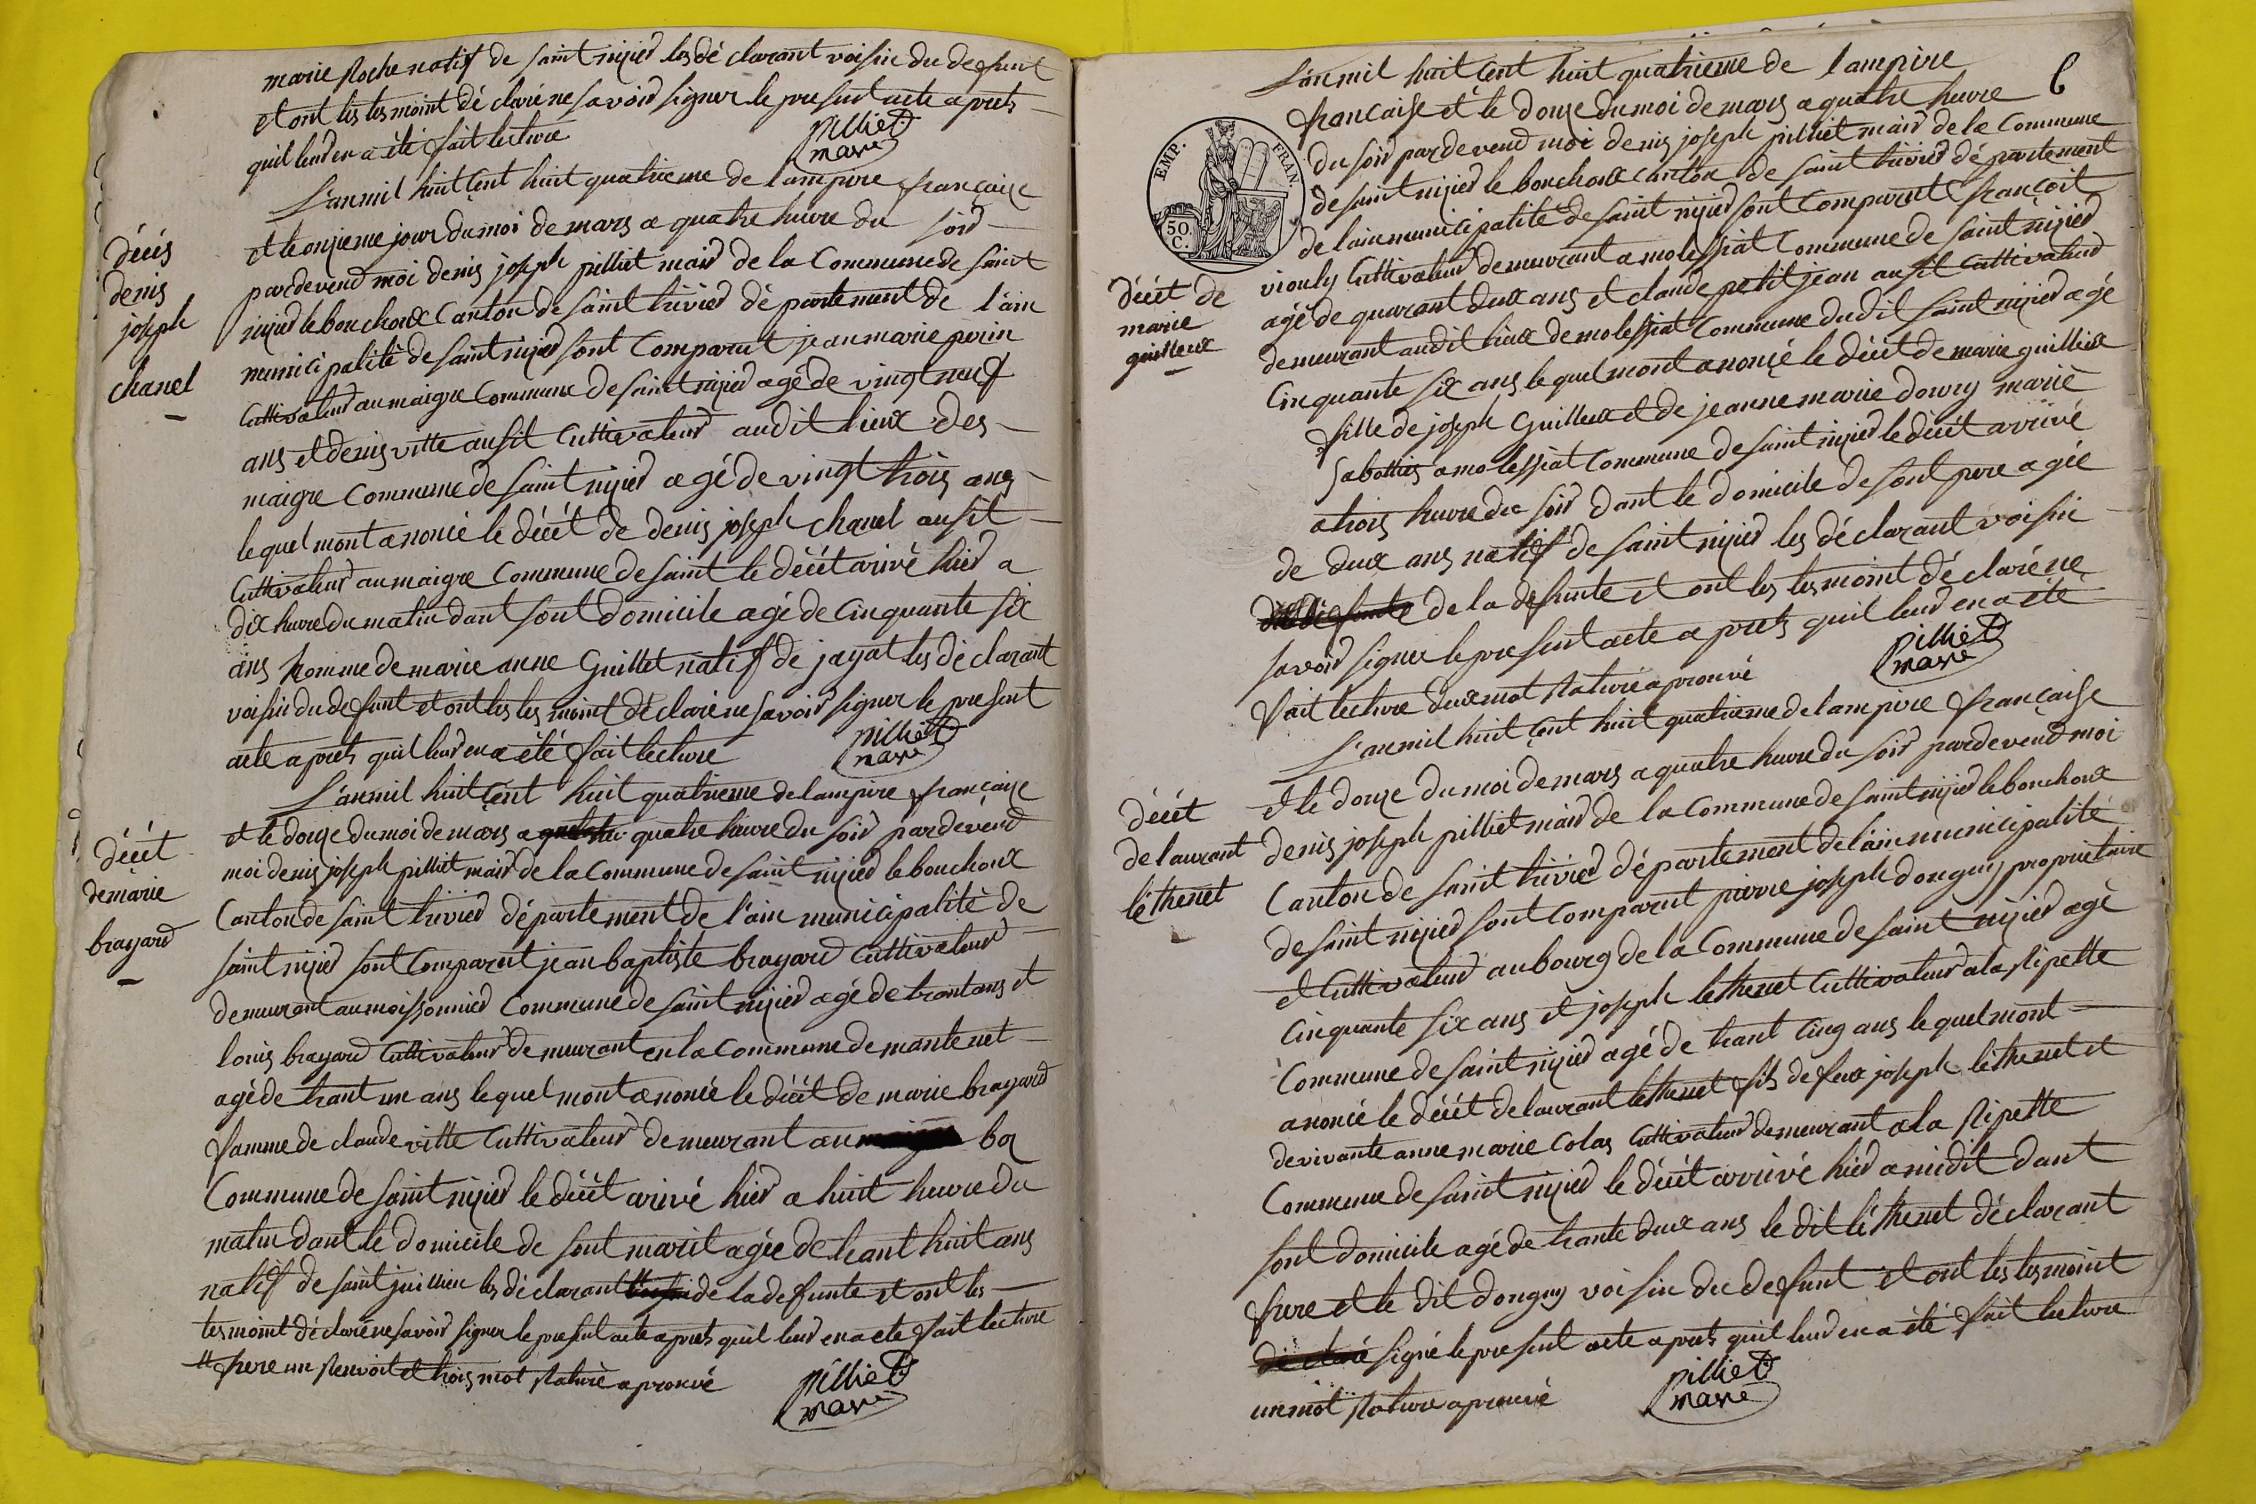 marie Roche natif de saint nizied les dé clarant voisin du defunt
et ont les tesmoint dé claré ne savoir signer le present acte a prets
quil leur en a été fait lecture
pilliet
maire
L'an mil huit cent huit quatrieme de l'ampire française
décés
denis
joseph
chanel
et le onzieme jour du moi de mars a quatre heure du soir
pardevend moi denis joseph pilliet mair de la Commune de saint
nizied le bouchoux Canton de saint trivied dé partement de l'ain
municipalité de saint nizied sont Comparut jean marie perin
Cultivateur au maigre Commune de saint nizied agé de vingt neuf
ans et denis vitte ausit Cultivateur audit lieux des
maigre Commune de saint nizied agé de vingt trois ans
lequel mont anoncé le décét de denis joseph chanel ausit
Cultivateur au maigre Commune de saint le décét arivé hier a
dix heure du matin dant sont domicile agé de cinquante six
ans homme de marie anne Guillet natif de jayat les dé clarant
voisin du defunt et ont les tesmoint dé claré ne savoir signer le present
acte aprets quil leur en a été fait lecture
pilliet
maire
L'an mil huit cent huit quatrieme de lampire française
décét
de marie
brayard
et le douze du moi de mars a quatre heure du soir pardevend
moi denis joseph pilliet mair de la Commune de saint nizied le bouchoux
Canton de saint trivied département de l'ain municipalité de
saint nizied sont Comparut jean baptiste brayard Cultivateur
demeurant au moissonnied Commune de saint nizied agé de trant ans et
louis brayard Cultivateur demeurant en la Commune de mantenet
agé de trant un ans lequel mont anoncé le décét de marie brayard
famme de claude vitte Cultivateur demeurant au boz
Commune de saint nizied le décét arivé hier a huit heure du
matin dant le domicile de sont marit agée de trant huit ans
natif de saint jullien les dé clarant de la defunte et ont les
tesmoint dé claré ne savoir signer le present acte aprets quil leur en a été fait lecture
# frere un Renvoit et trois mot Raturé aprouvé
pilliet
maire
6
L'an mil huit cent huit quatrieme de l'ampire
EMP. FRAN.
50 C.
française et le douze du moi de mars a quatre heure
du soir pardevend moi denis joseph pilliet mair de la Commune
de saint nizied le bouchoux Canton de saint trivied dé partement
de lain municipalité de saint nizied sont Comparut françoit
décét de
marie
guilleux
viouly Cultivateur demeurant a molessiat Commune de saint nizied
agé de quarant deux ans et claude petit jean ausit Cultivateur
demeurant audit lieux de molessiat Commune dudit saint nizied agé
Cinquante six ans lequel mont anonçé le décét de marie guilleux
fille de joseph Guilleux et de jeanne marie douvry marié
sabottier a molessiat Commune de saint nizied le décét arrivé
a trois heure du soir dant le domicile de sont pere agée
de deux ans natif de saint nizied les dé clarant voisin
de la defunte et ont les tesmoint dé claré ne
savoir signer le present acte aprets quil leur en a été
fait lecture deux mot Raturé aprouvé
pilliet
maire
L'an mil huit cent huit quatrieme de lampire française
décét
de laurant
léthenet
et le douze du moi de mars a quatre heure du soir pardevend moi
denis joseph pilliet mair de la Commune de saint nizied le bouchoux
Canton de saint trivied département de lain municipalité
de saint nizied sont Comparut pierre joseph donguy proprietaire
et Cultivateur au bourg de la Commune de saint nizied agé
Cinquante six ans et joseph lethenet Cultivateur a la Ripette
Commune de saint nizied agé de trant cinq ans lequel mont
anoncé le décét de laurant lethenet fils de feux joseph lethenet et
de vivante anne marie Colas Cultivateur demeurant a la Ripette
Commune de saint nizied le décét arrivé hier a midit dant
sont domicile agé de trante deux ans le dit léthenet déclarant
frere et le dit donguy voisin du defunt et ont les tesmoint
signé le present acte aprets quil leur en a été fait lecture
un mot Raturé aprouvé
pilliet
maire